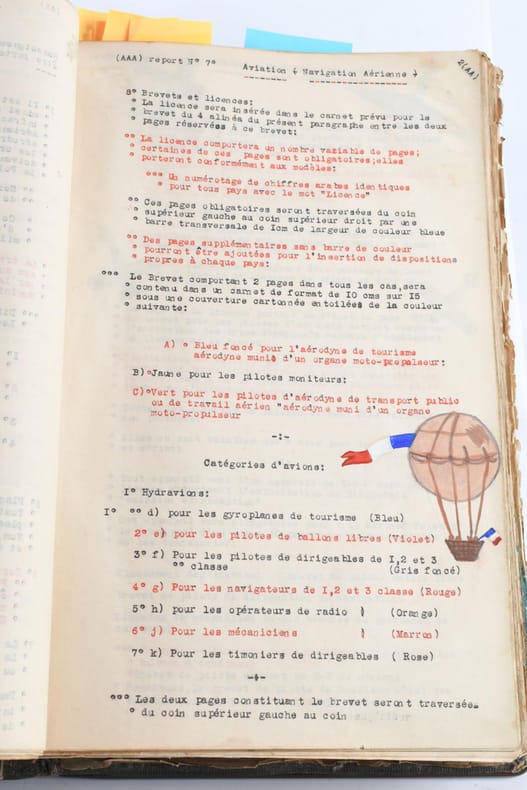 (AAA) report N° 7°
2(AA)
Aviation & Navigation Aérienne
8° Brevets et licences:
° La licence sera insérée dans le carnet prévu pour le
° brevet du 4 alinéa du présent paragraphe entre les deux
° pages réservées à ce brevet:
°° La licence comportera un nombre variable de pages;
° certaines de ces pages sont obligatoires;elles
° porteront conformément aux modèles:
°°° Un numérotage de chiffres arabes identiques
° pour tous pays avec le mot "Licence"
°° Ces pages obligatoires seront traversées du coin
° supérieur gauche au coin supérieur droit par une
° barre transversale de Icm de largeur de couleur bleue
°° Des pages supplémentaires sans barre de couleur
° pourront être ajoutées pour l'insertion de dispositions
° propres à chaque pays:
°°° Le Brevet comportant 2 pages dans tous les cas,sera
° contenu dans un carnet de format de I0 cms sur I5
° sous une couverture cartonnée entoilées de la couleur
° suivante:
A) ° Bleu foncé pour l'aérodyne de tourisme
aérodyne munis d'un organe moto-propulseur:
B)°Jaune pour les pilotes moniteurs:
C)°Vert pour les pilotes d'aérodyne de transport public
ou de travail aérien "aérodyne muni d'un organe
moto-propulseur
-:-
Catégories d'avions:
I° Hydravions:
I° °° d) pour les gyroplanes de tourisme (Bleu)
2° e) pour les pilotes de ballons libres (Violet)
3° f) Pour les pilotes de dirigeables de I,2 et 3
°° classe (Gris foncé)
4° g) Pour les navigateurs de I,2 et 3 classe (Rouge)
5° h) pour les opérateurs de radio (Orange)
6° j) Pour les mécaniciens (Marron)
7° k) Pour les timoniers de dirigeables ( Rose)
°°° Les deux pages constituant le brevet seront traversées
° du coin supérieur gauche au coin